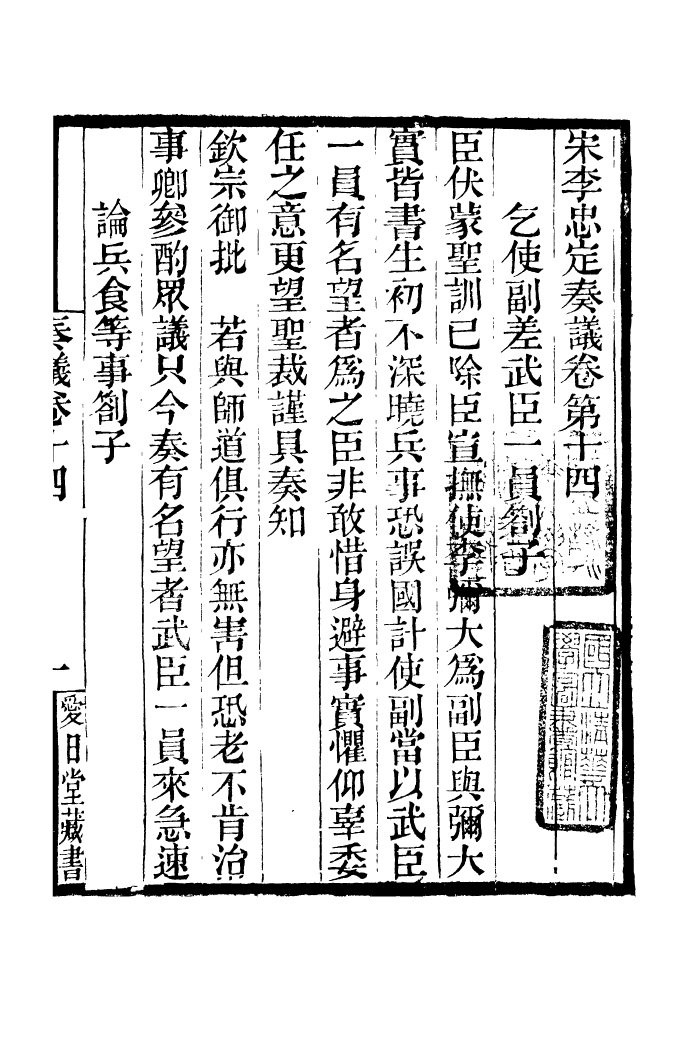 宋李忠定奏議卷第十四
乞使副差武臣一員劄子
臣伏蒙聖訓已除臣宣撫使李彌大爲副臣與彌大
實皆書生初不深曉兵事恐誤國計使副當以武臣
一員有名望者爲之臣非敢惜身避事實懼仰辜委
任之意更望聖裁謹具奏知
欽宗御批　若與師道俱行亦無害但恐老不肯治
事卿參酌眾議只今奏有名望者武臣一員來急速
論兵食等事劄子
奏議卷十四
一
愛日堂藏書
國立清華大學圖書館藏